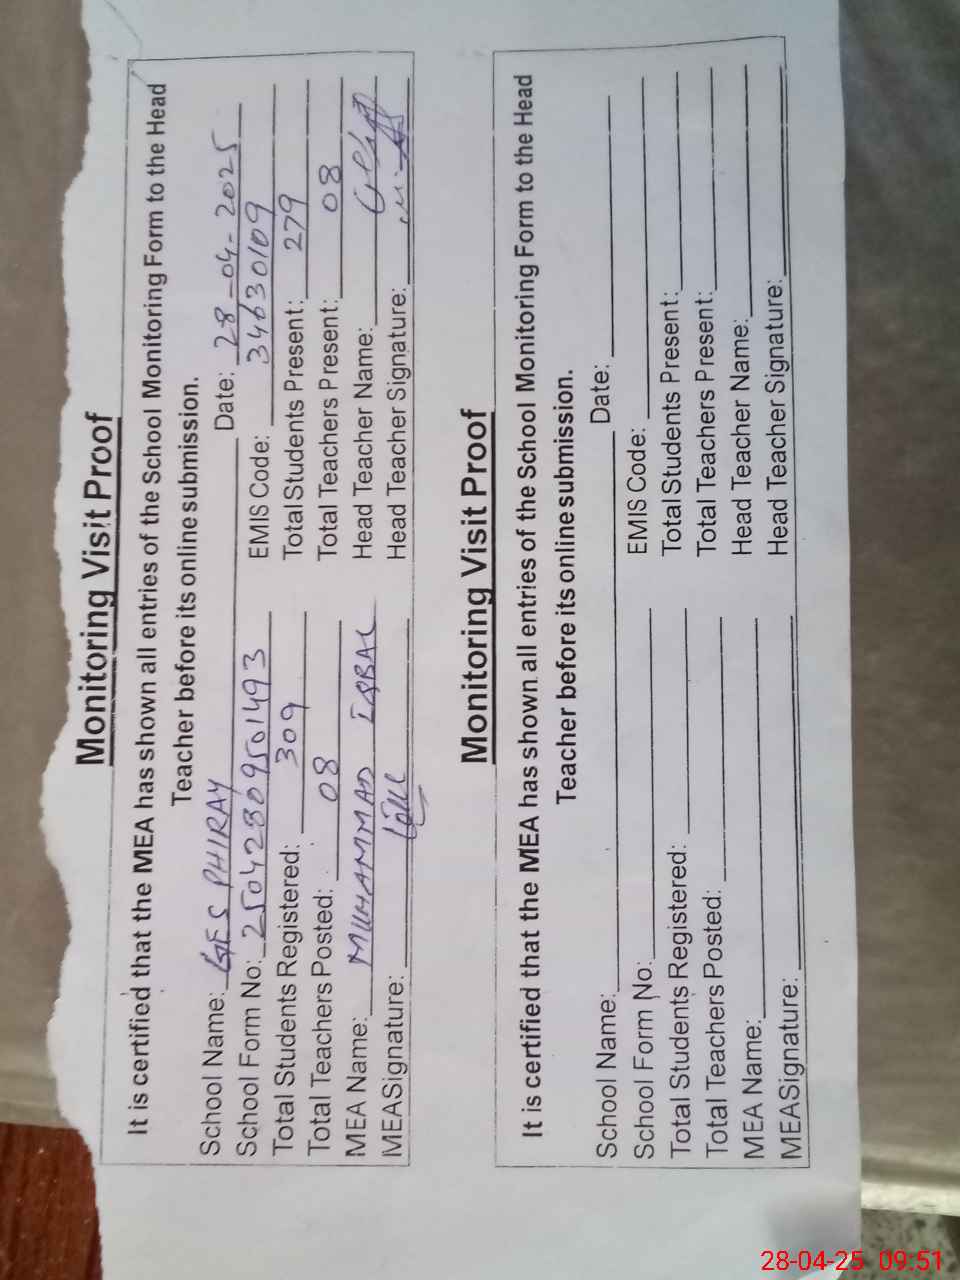 Monitoring Visit Proof
It is certified that the MEA has shown all entries of the School Monitoring Form to the Head
Teacher before its online submission.
School Name: GES PHIRAY Date: 28-04-2025
School Form No: 25042809501493 EMIS Code: 34630109
Total Students Registered: 309 Total Students Present: 279
Total Teachers Posted: 08 Total Teachers Present: 08
MEA Name: MUHAMMAD IQBAL Head Teacher Name:
MEASignature: Head Teacher Signature:
Monitoring Visit Proof
It is certified that the MEA has shown all entries of the School Monitoring Form to the Head
Teacher before its online submission.
School Name: Date:
School Form No: EMIS Code:
Total Students Registered: Total Students Present:
Total Teachers Posted: Total Teachers Present:
MEA Name: Head Teacher Name:
MEASignature: Head Teacher Signature:
28-04-25 09:51